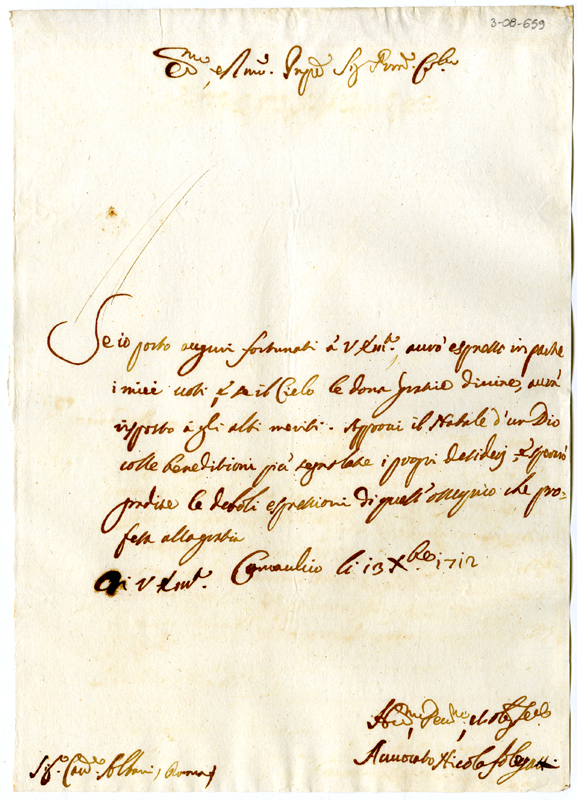 3-08-659
Em.mo e Rmo. Sig.
Se io porto auguri fortunati à V. Em.za, avrò espresso in parte
i miei voti, e se il Cielo le dona gratie divine, avrà
risposto à gli alti meriti. il Natale d'un Dio
colle beneditioni più segnalate i propri desiderij, e
gradire le devoli espressioni di quell'ossequio che pro-
fessa alla gratia
Di V. Em.za Comacchio li 13 Xbre 1712
Avvocato Nicola
Sig.r Card.e Albani, Roma